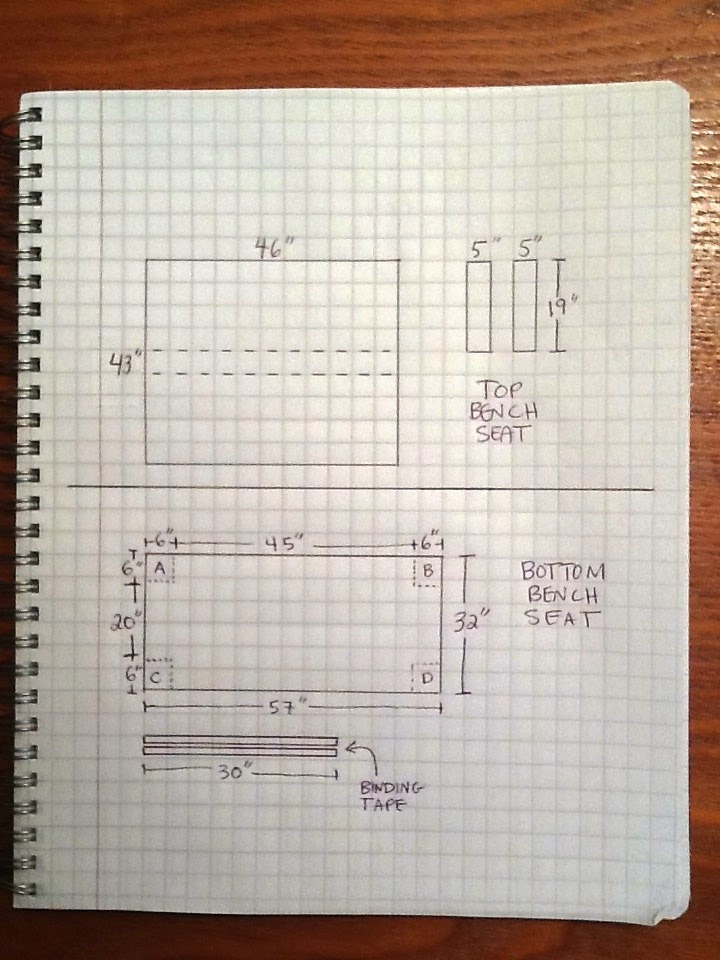 46"
5" 5"
19"
43"
TOP
BENCH
SEAT
6" 45" 6"
6" A B
BOTTOM
BENCH
SEAT
20" 32"
6" C D
57"
30"
BINDING
TAPE